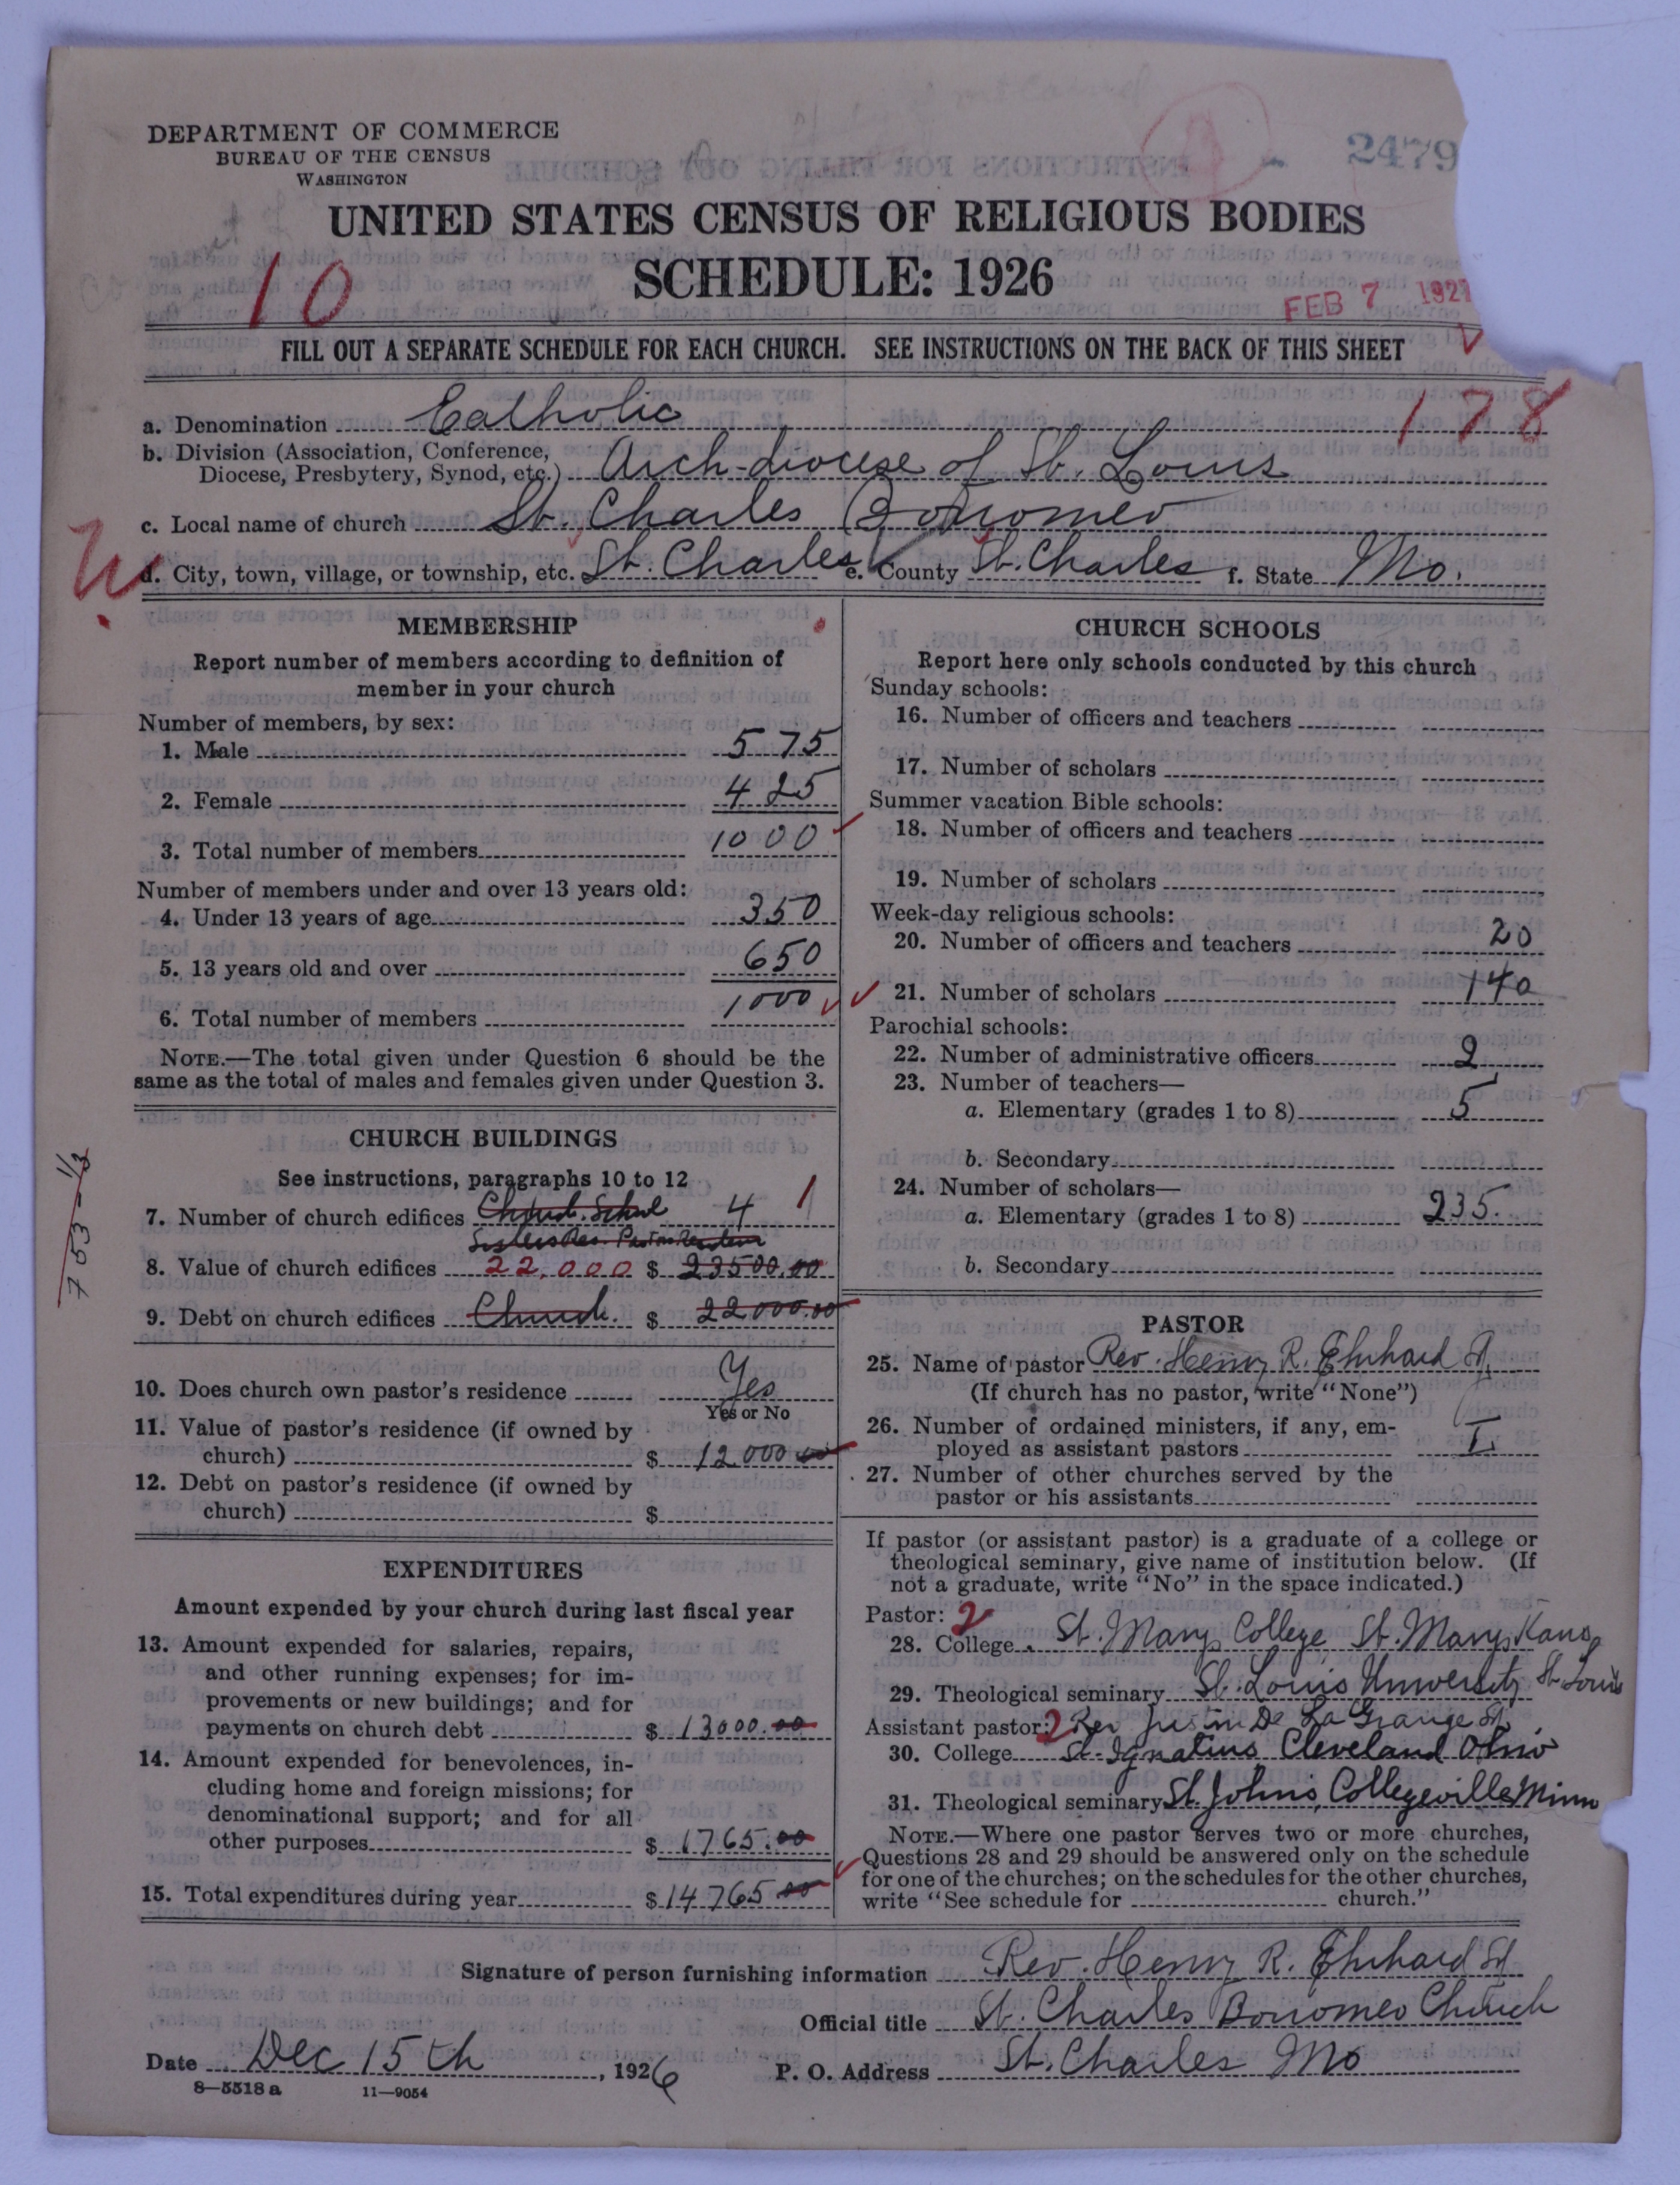 DEPARTMENT OF COMMERCE
BUREAU OF THE CENSUS
WASHINGTON
2479
UNITED STATES CENSUS OF RELIGIOUS BODIES
SCHEDULE: 1926
10
FEB 7 1927
FILL OUT A SEPARATE SCHEDULE FOR EACH CHURCH. SEE INSTRUCTIONS ON THE BACK OF THIS SHEET
178
a. Denomination Catholic
b. Division (Association, Conference,
Diocese, Presbytery, Synod, etc.) Arch-diocese of St. Louis
c. Local name of church St. Charles Borromeo
d. City, town, village, or township, etc. St. Charles e. County St. Charles f. State Mo.
MEMBERSHIP
Report number of members according to definition of
member in your church
Number of members, by sex:
1. Male 575
2. Female 425
3. Total number of members 1000
Number of members under and over 13 years old:
4. Under 13 years of age 350
5. 13 years old and over 650
6. Total number of members 1000
NOTE.—The total given under Question 6 should be the
same as the total of males and females given under Question 3.
CHURCH BUILDINGS
See instructions, paragraphs 10 to 12
7. Number of church edifices Church. School 4 1
Sisters Res. Pastors Residence
8. Value of church edifices 22,000 $ 23500.00
9. Debt on church edifices Church. $ 22000.00
10. Does church own pastor's residence Yes
Yes or No
11. Value of pastor's residence (if owned by
church) $ 12000.00
12. Debt on pastor's residence (if owned by
church) $
753-1/3
EXPENDITURES
Amount expended by your church during last fiscal year
13. Amount expended for salaries, repairs,
and other running expenses; for im-
provements or new buildings; and for
payments on church debt $ 13000.00
14. Amount expended for benevolences, in-
cluding home and foreign missions; for
denominational support; and for all
other purposes $ 1765.00
15. Total expenditures during year $ 14765.00
CHURCH SCHOOLS
Report here only schools conducted by this church
Sunday schools:
16. Number of officers and teachers
17. Number of scholars
Summer vacation Bible schools:
18. Number of officers and teachers
19. Number of scholars
Week-day religious schools:
20. Number of officers and teachers 20
21. Number of scholars 140
Parochial schools:
22. Number of administrative officers 2
23. Number of teachers—
a. Elementary (grades 1 to 8) 5
b. Secondary
24. Number of scholars—
a. Elementary (grades 1 to 8) 235.
b. Secondary
PASTOR
25. Name of pastor Rev. Henry R. Ehrhard SJ.
(If church has no pastor, write "None")
26. Number of ordained ministers, if any, em-
ployed as assistant pastors I.
27. Number of other churches served by the
pastor or his assistants
If pastor (or assistant pastor) is a graduate of a college or
theological seminary, give name of institution below. (If
not a graduate, write "No" in the space indicated.)
Pastor: 2
28. College St. Marys College, St. Marys Kans
29. Theological seminary St. Louis University St Louis
Assistant pastor: 2 Rev Justin De La Grange SJ.
30. College St. Ignatius Cleveland Ohio
31. Theological seminary St. Johns, Collegeville Minn
NOTE.—Where one pastor serves two or more churches,
Questions 28 and 29 should be answered only on the schedule
for one of the churches; on the schedules for the other churches,
write "See schedule for church."
Signature of person furnishing information Rev. Henry R. Ehrhard SJ
Official title St. Charles Borromeo Church
Date Dec 15th, 1926 P. O. Address St. Charles Mo
8—5518a 11—9054